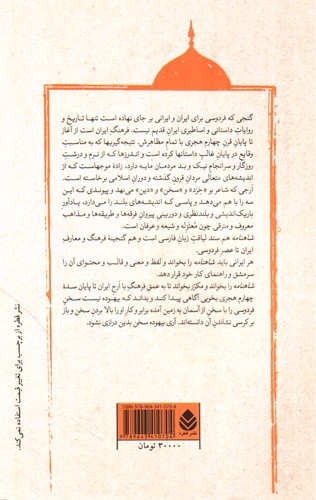 گنجی که فردوسی برای ایران و ایرانی بر جای نهاده است تنها تاریخ و
روایات داستانی و اساطیری ایرانِ قدیم نیست. فرهنگِ ایران است از آغاز
تا پایانِ قرنِ چهارم هجری با تمام مظاهرش. نتیجه‌گیریها که به مناسبتِ
وقایع در پایانِ غالبِ داستانها کرده است و اندرزها که از نرم و درشتِ
روزگار و سرانجامِ نیک و بدِ مردمان مایه دارد، زادهٔ موجهاست که از
اندیشه‌های متعالیِ مردانِ قرونِ گذشته و دورانِ اسلامی برخاسته است.
ارجی که شاعر بر «خِرَد» و «سخن» و «دین» می‌نهد و پیوندی که این
سه را با هم می‌دهد و پاسی که اندیشه‌های بلند را می‌دارد، یادآورِ
باریک‌اندیشی و بلندنظری و دوربینیِ پیروانِ فرقه‌ها و طریقه‌ها و مذاهبِ
معروف و مترقی چون مُعتَزِله و شیعه و عرفان است.
شاهنامه هم سندِ لیاقتِ زبانِ فارسی است و هم گنجینهٔ فرهنگ و معارفِ
ایران تا عصرِ فردوسی.
هر ایرانی باید شاهنامه را بخواند و لفظ و معنی و قالب و محتوای آن را
سرمشق و راهنمای کار خود قرار دهد.
شاهنامه را بخواند و مکرّر بخواند تا به عمقِ فرهنگِ با ارجِ ایران تا پایانِ سدهٔ
چهارم هجری بخوبی آگاهی پیدا کند و بداند که بیهوده نیست سخنِ
فردوسی را با سخنِ از آسمان به زمین آمده برابر و کارِ او را بالا بردنِ سخن و باز
بر کرسی نشاندنِ آن دانسته‌اند. آری بیهوده سخن بدین درازی نشود.
نشر قطره از برچسب برای تغییر قیمت استفاده نمی‌کند.
ISBN: 978-964-341-070-4
9 789643 410704
نشر قطره
۳۰۰۰۰ تومان